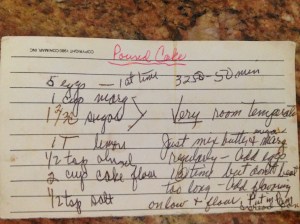 Pound Cake
5 eggs — 1 at time 325° - 50 min
1 cup marg
1 2/3 C sugar Very room temperature
1 T lemon Just mix butter, sugar, marg
1/2 tsp regularly - Add eggs
2 cup cake flour 1 at time but don't beat
1/2 tsp salt too long - Add flavoring
on low & flour. Put in